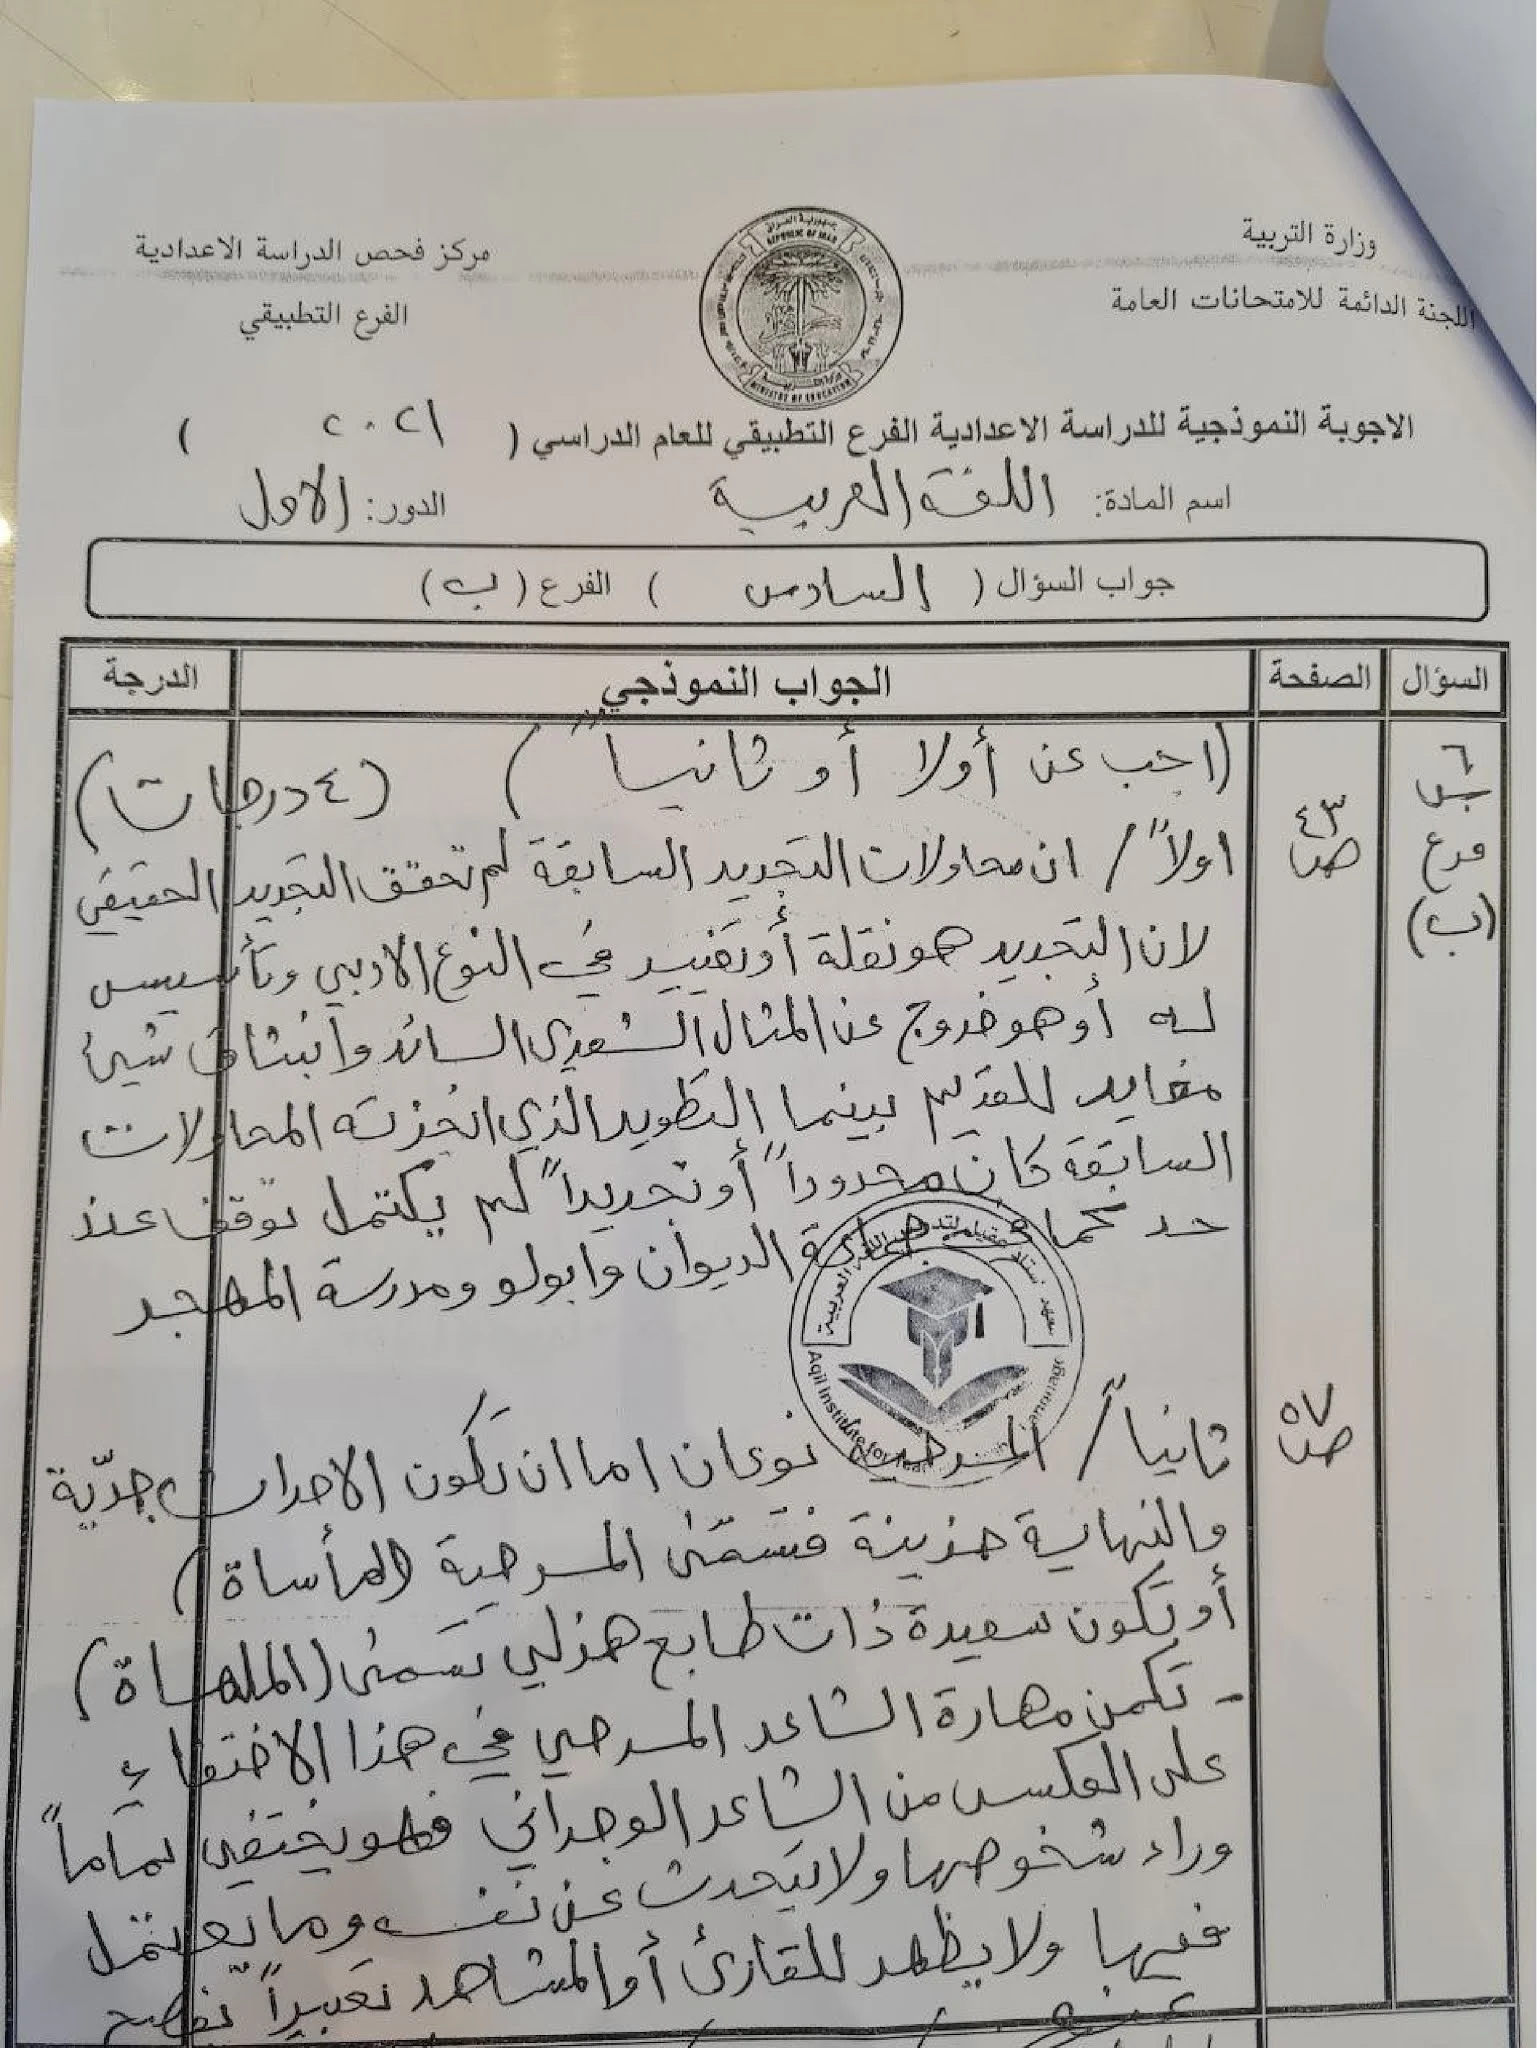 وزارة التربية
اللجنة الدائمة للامتحانات العامة
مركز فحص الدراسة الاعدادية
الفرع التطبيقي
جمهورية العراق
REPUBLIC OF IRAQ
وزارة التربية
MINISTRY OF EDUCATION
الاجوبة النموذجية للدراسة الاعدادية الفرع التطبيقي للعام الدراسي ( ٢٠٢١ )
اسم المادة: اللغة العربية الدور: الاول
جواب السؤال ( السادس ) الفرع (ب)
السؤال الصفحة الجواب النموذجي الدرجة
٦
فرع
(ب)
٤٣
ص
(اجب عن أولا أو ثانياً) (٤ درجات)
اولاً / ان محاولات التجديد السابقة لم تحقق التجديد الحقيقي
لان التجديد هو نقلة أو تغيير في النوع الادبي وتأسيس
له أو هو خروج عن المثال الشعري السائد وانبثاق شيئ
مغاير للقديم بينما التطوير الذي انجزته المحاولات
السابقة كان محدوداً أو تجديداً لم يكتمل توقف عند
حد جماعة الديوان وابولو ومدرسة المهجر
٥٧
ص
ثانياً / المسرحية نوعان اما ان تكون الاحداث جدّية
والنهاية حزينة فتسمّى المسرحية (المأساة)
أو تكون سعيدة ذات طابع هزلي تسمى (الملهاة)
- تكمن مهارة الشاعر المسرحي في هذا الاختفاء
على العكس من الشاعر الوجداني فهو يختفي تماماً
وراء شخوصها ولا يتحدث عن نفسه وما يعتمل
فيها ولا يظهر للقارئ أو المشاهد تعبيراً يفصح
Aqil Institute for Language